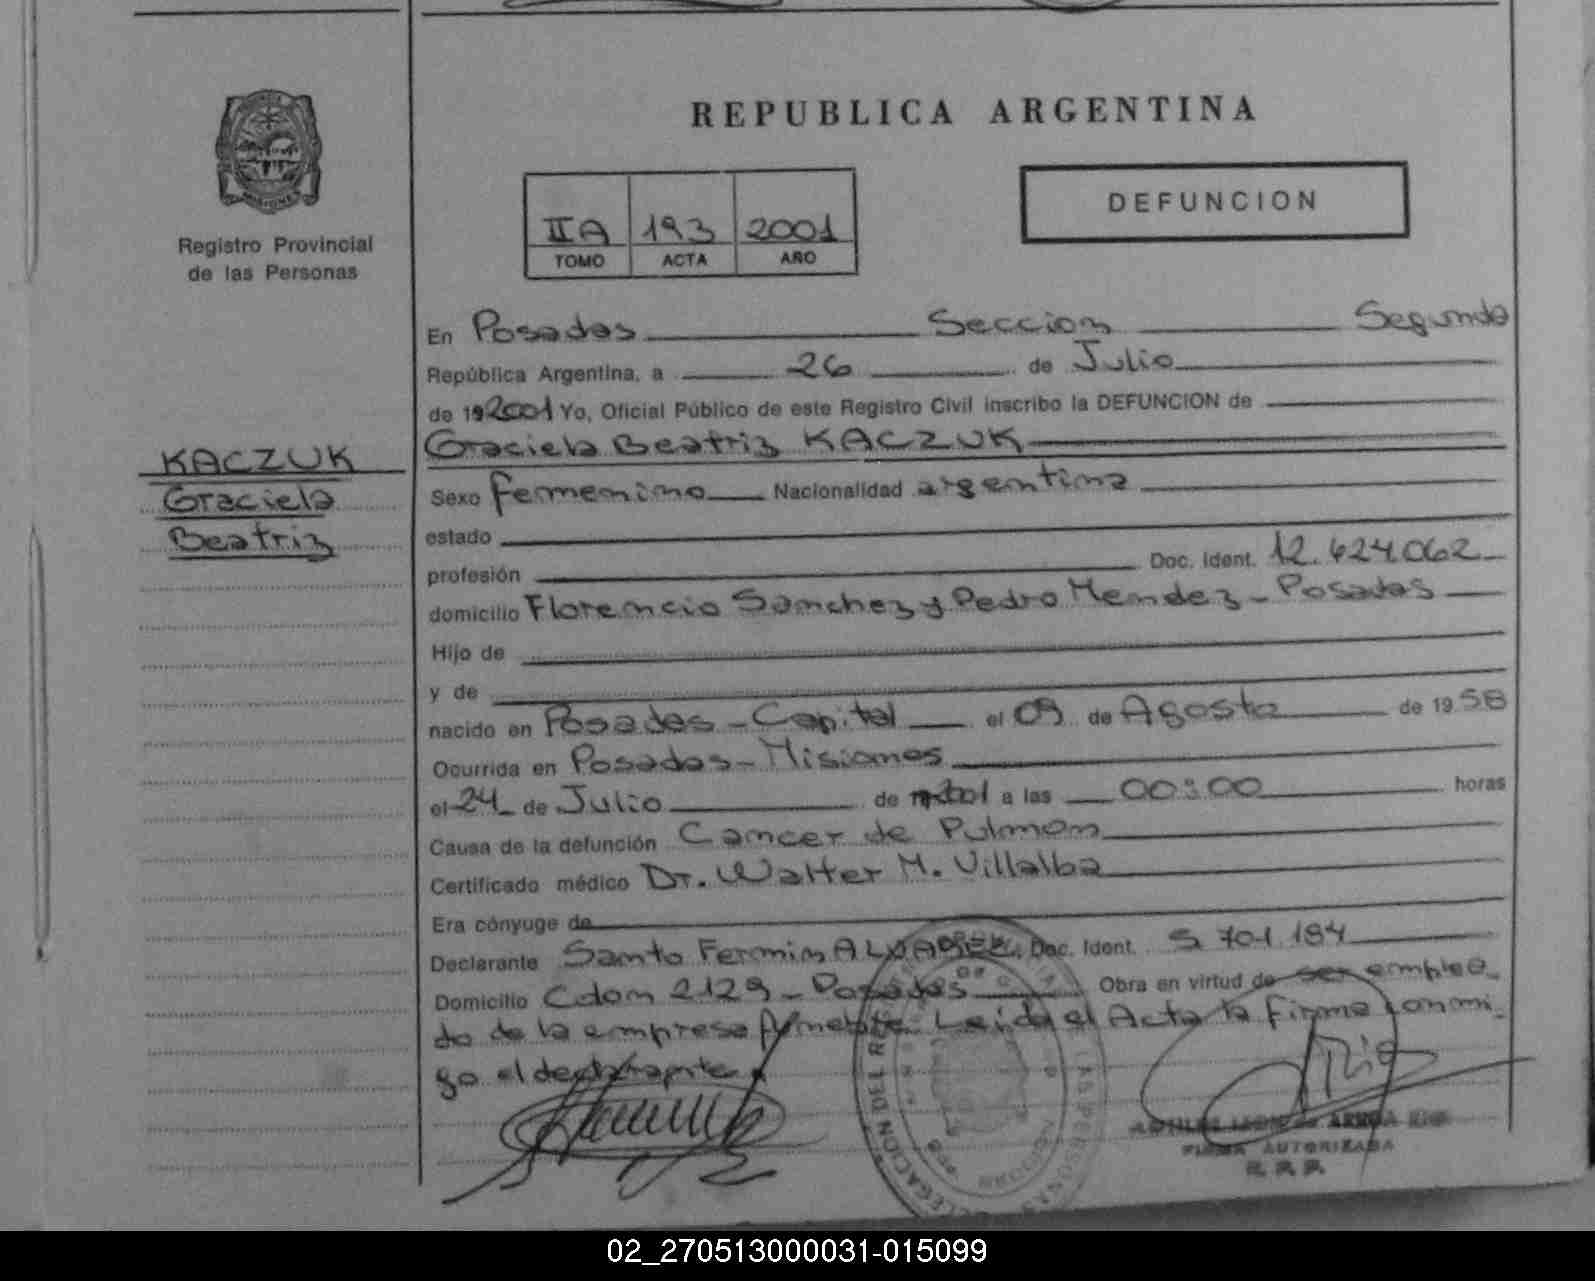 REPUBLICA ARGENTINA
MISIONES
Registro Provincial
de las Personas
IIA 193 2001
TOMO ACTA AÑO
DEFUNCION
En Posadas Seccion Segunda
República Argentina, a 26 de Julio
de 192001 Yo, Oficial Público de este Registro Civil inscribo la DEFUNCION de
Graciela Beatriz KACZUK
KACZUK
Graciela
Beatriz
Sexo femenino Nacionalidad argentina
estado
profesión Doc. Ident. 12.424.062
domicilio Florencio Sanchez y Pedro Mendez - Posadas
Hijo de
y de
nacido en Posadas - Capital el 09 de Agosto de 1958
Ocurrida en Posadas - Misiones
el 24 de Julio de 2001 a las 00:00 horas
Causa de la defunción Cancer de Pulmon
Certificado médico Dr. Walter M. Villalba
Era cónyuge de
Declarante Santo Fermin Doc. Ident. 5 701.184
Domicilio Colon 2129 - Posadas Obra en virtud de ser emplea-
do de la empresa Leida el Acta la firma conmi-
go el declarante
DELEGACION DEL LAS PERSONAS
FIRMA AUTORIZADA
R.P.P.
02_270513000031-015099